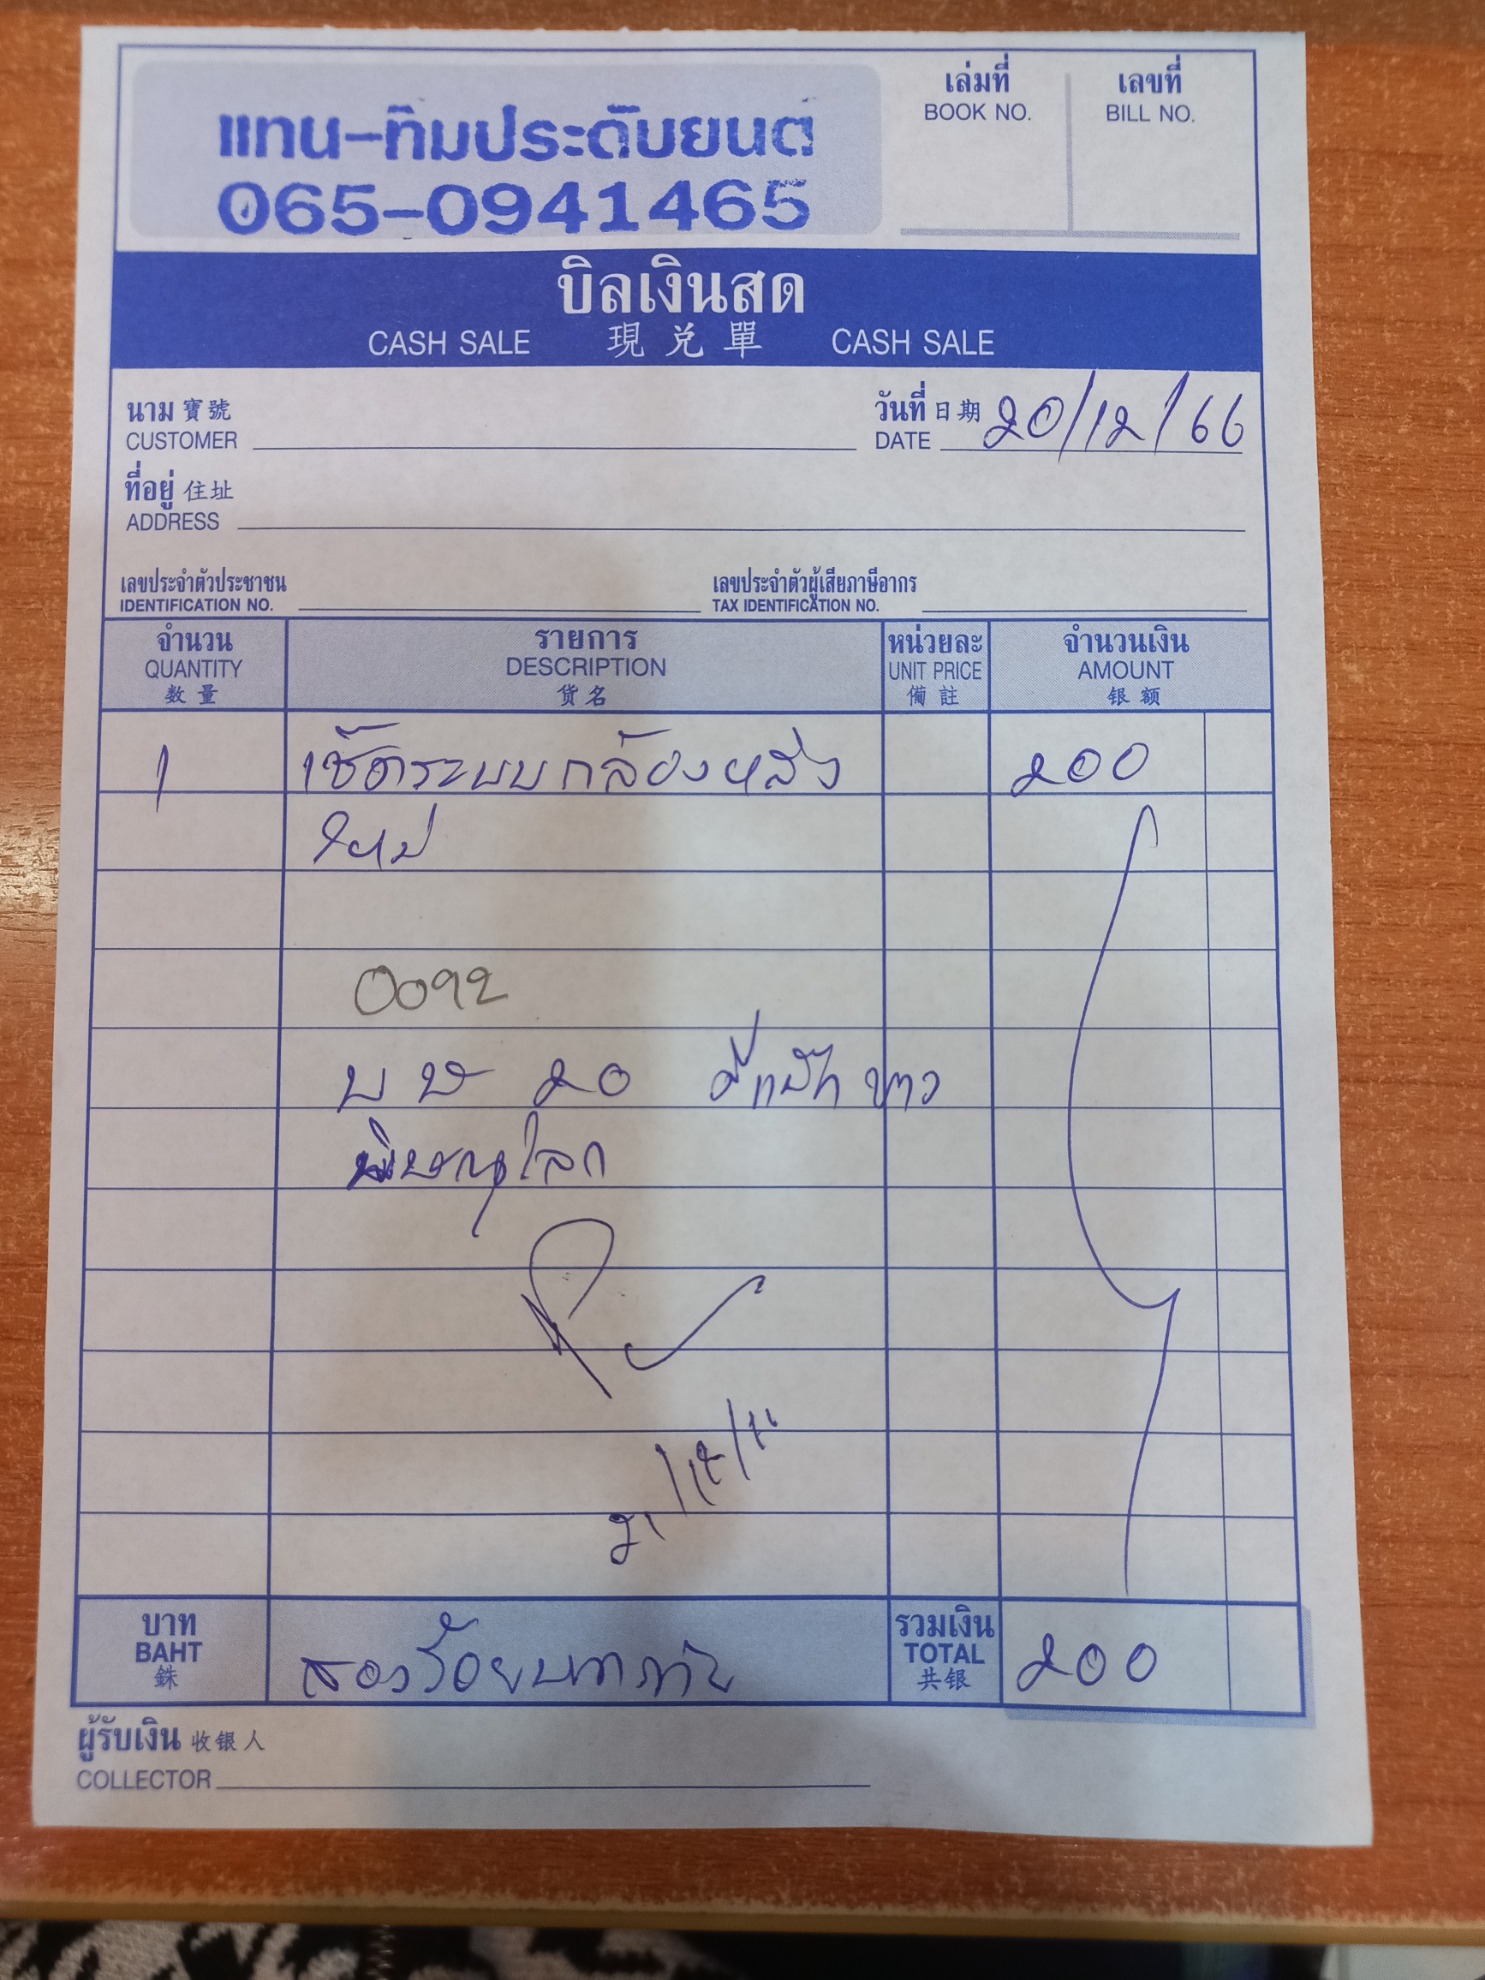 แทน-ทิมประดับยนต์
065-0941465
เล่มที่
BOOK NO.
เลขที่
BILL NO.
บิลเงินสด
CASH SALE 現兑單 CASH SALE
นาม 寶號
CUSTOMER
วันที่ 日期 20/12/66
DATE
ที่อยู่ 住址
ADDRESS
เลขประจำตัวประชาชน
IDENTIFICATION NO.
เลขประจำตัวผู้เสียภาษีอากร
TAX IDENTIFICATION NO.
จำนวน รายการ หน่วยละ จำนวนเงิน
QUANTITY DESCRIPTION UNIT PRICE AMOUNT
数量 货名 備註 银额
1 เช็ตระบบกล้องหลัง 200
ใหม่
0092
บษ 20 ขาว
พิษณุโลก
21/12/66
บาท
BAHT
銖
สองร้อยบาทถ้วน
รวมเงิน
TOTAL
共银
200
ผู้รับเงิน 收银人
COLLECTOR